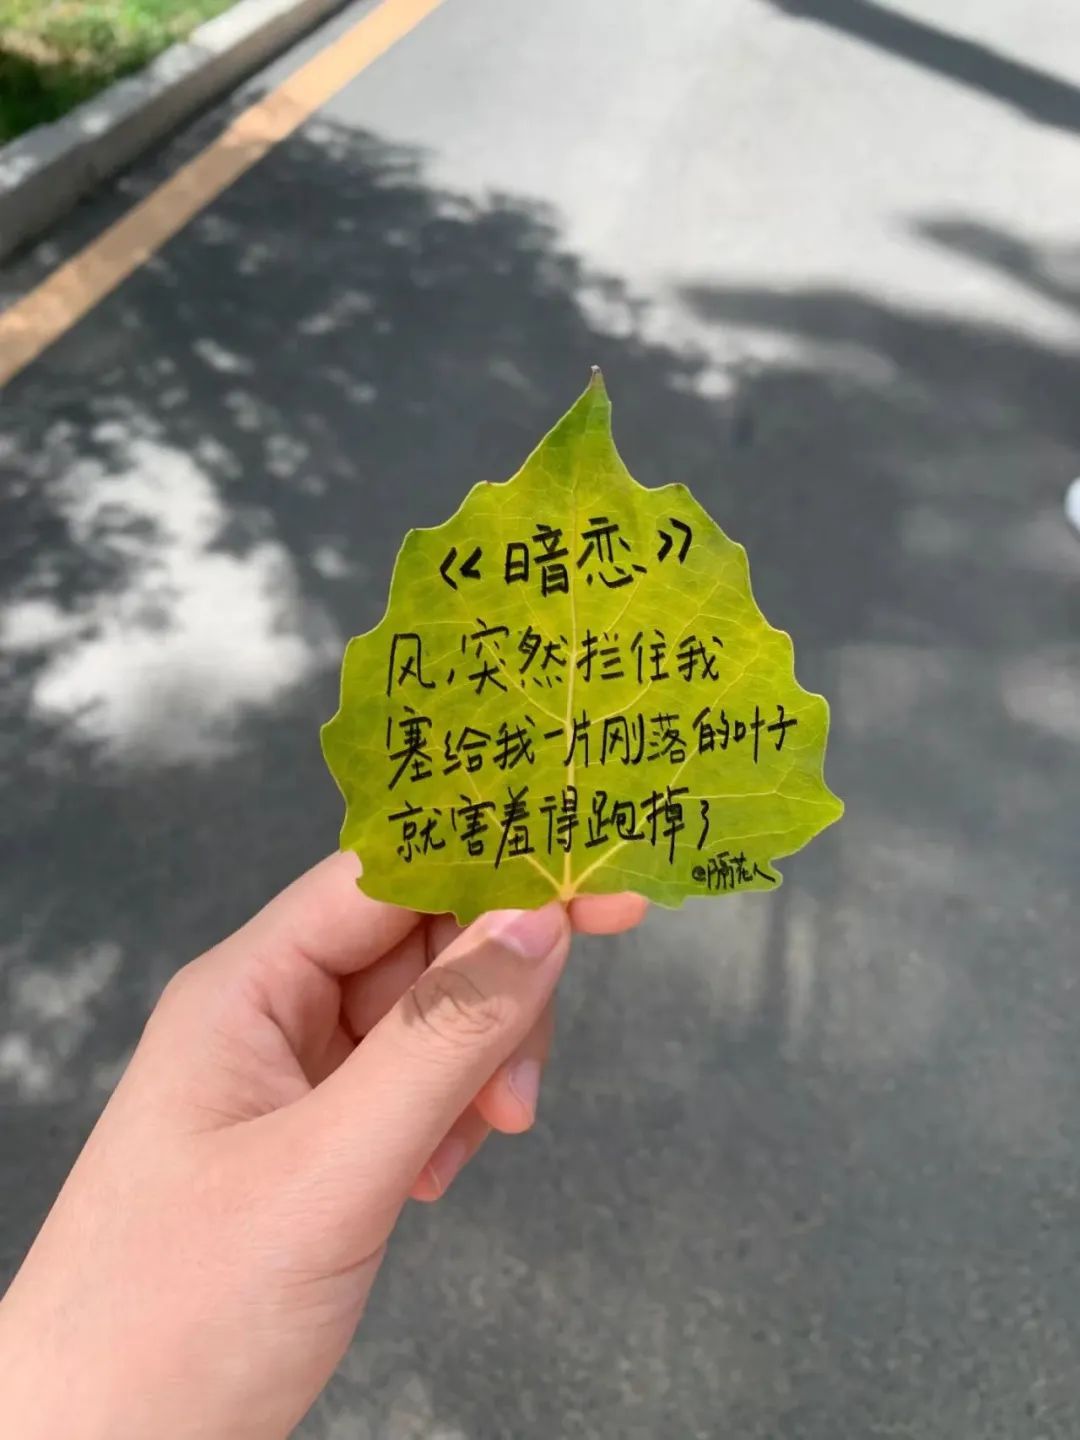 《暗恋》
风,突然拦住我
塞给我一片刚落的叶子
就害羞得跑掉了
@隔花人